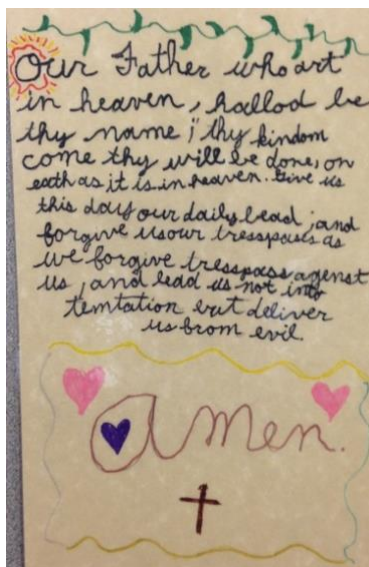 Our Father who art
in heaven, hallod be
thy name; thy kindom
come thy will be done, on
eath as it is in heaven. Give us
this day our daily bead; and
forgive us our tresspasss as
we forgive tresspass agenst
us, and lead us not into
temtation but deliver
us from evil.
Amen.